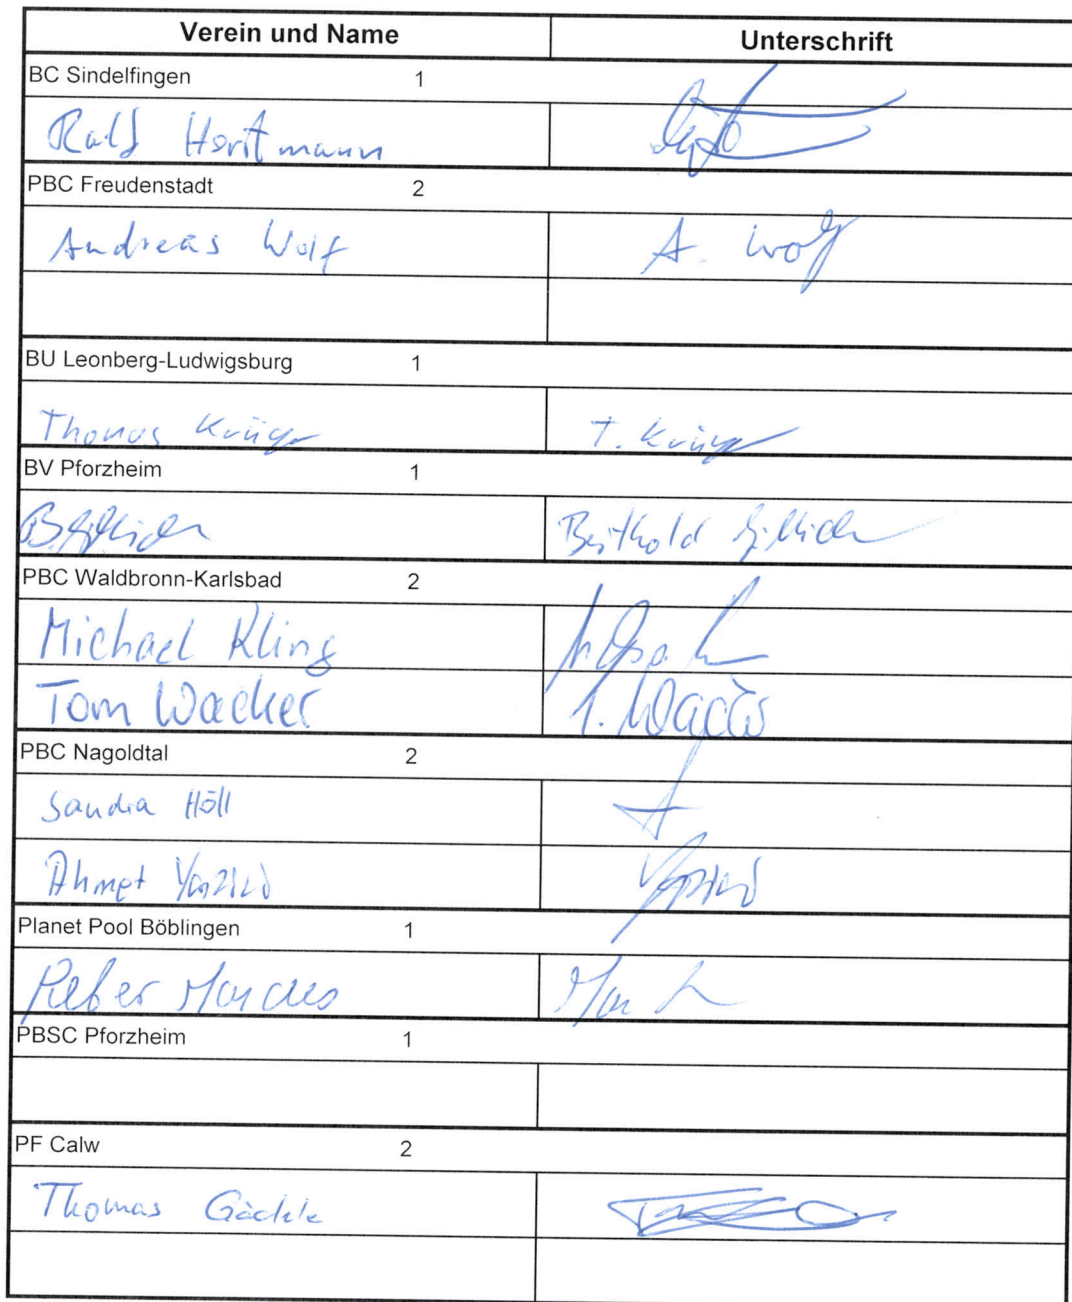 Verein und Name Unterschrift
BC Sindelfingen 1
Ralf Horstmann
PBC Freudenstadt 2
Andreas Wolf A. Wolf
BU Leonberg-Ludwigsburg 1
Thomas Krüger T. Krüger
BV Pforzheim 1
Berthold
PBC Waldbronn-Karlsbad 2
Michael Kling
Tom Wacker T. Wacker
PBC Nagoldtal 2
Sandra Höll
Ahmet
Planet Pool Böblingen 1
Reber Marcus
PBSC Pforzheim 1
PF Calw 2
Thomas Gäckle